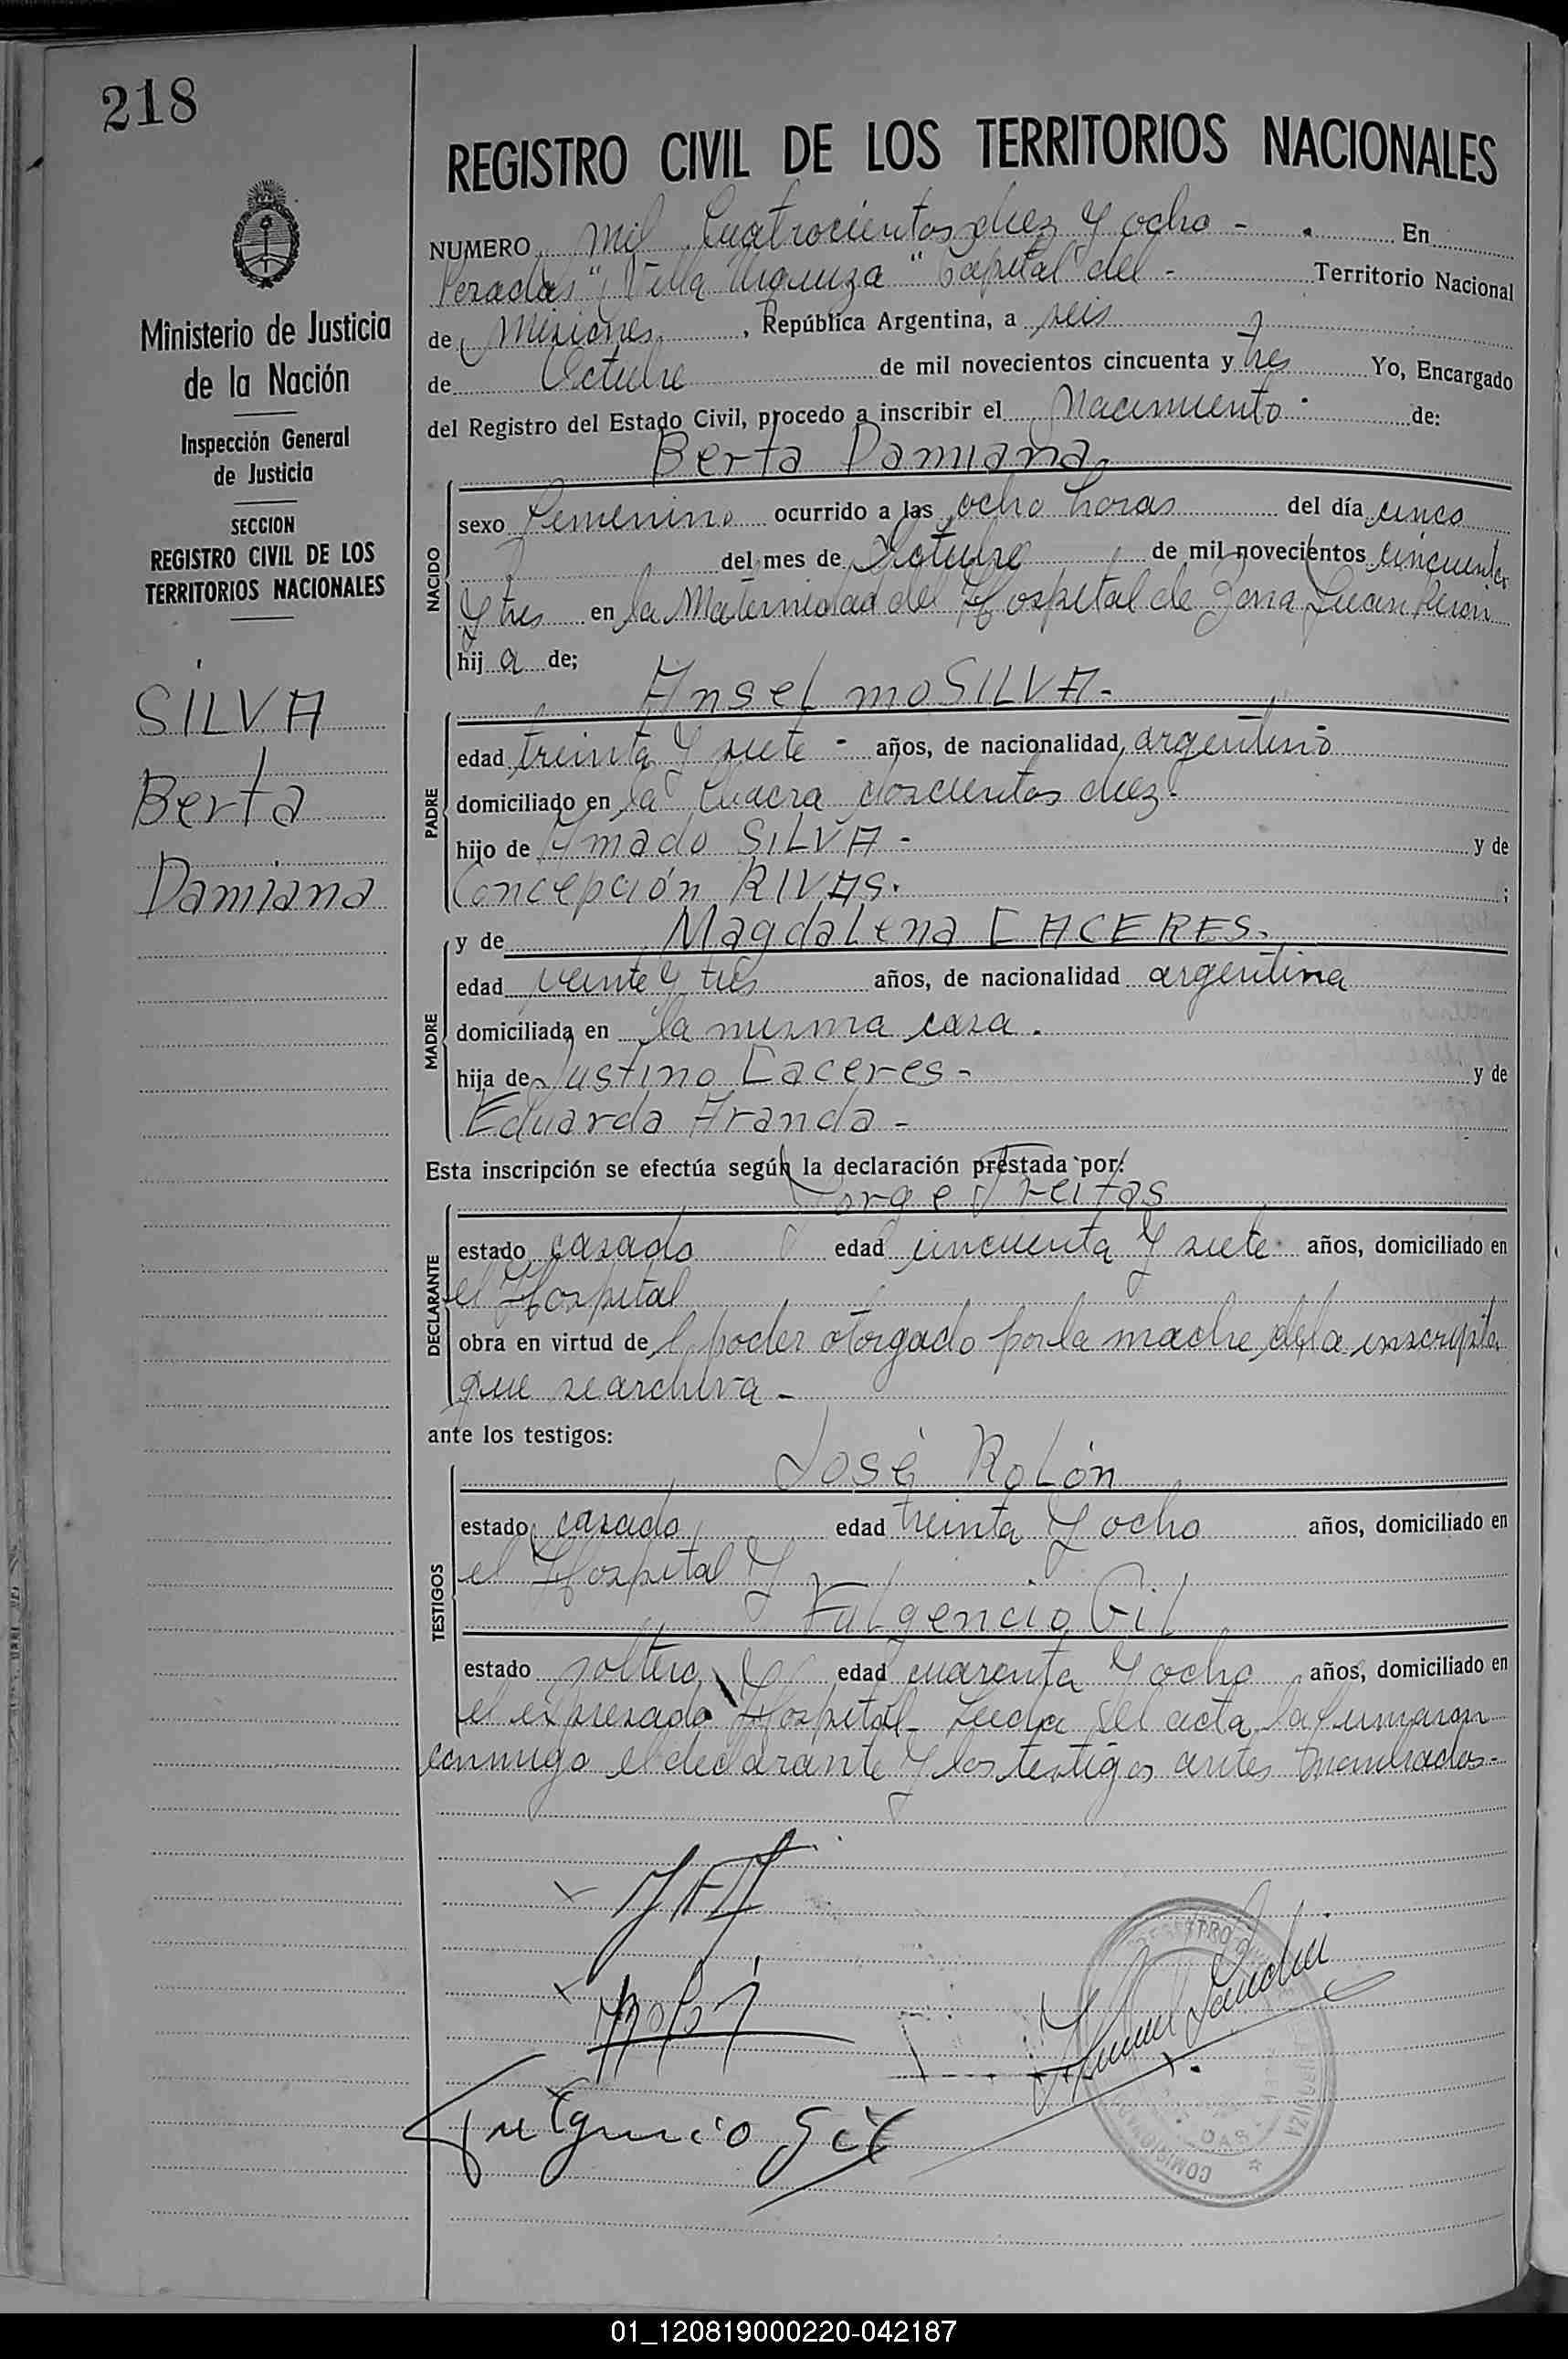 218
REGISTRO CIVIL DE LOS TERRITORIOS NACIONALES
Ministerio de Justicia
de la Nación
Inspección General
de Justicia
SECCION
REGISTRO CIVIL DE LOS
TERRITORIOS NACIONALES
SILVA
Berta
Damiana
NUMERO mil cuatrocientos diez y ocho - . En
Posadas "Villa Urquiza" Capital del - Territorio Nacional
de Misiones , República Argentina, a seis
de Octubre de mil novecientos cincuenta y tres Yo, Encargado
del Registro del Estado Civil, procedo a inscribir el Nacimiento de:
Berta Damiana
NACIDO
sexo femenino ocurrido a las ocho horas del día cinco
del mes de Octubre de mil novecientos cincuenta
y tres en la Maternidad del Hospital de Zona Juan Perón
hij a de;
Anselmo SILVA-
PADRE
edad treinta y siete - años, de nacionalidad argentino
domiciliado en la chacra doscientos diez-
hijo de Amado SILVA - y de
Concepción RIVAS. ;
MADRE
y de Magdalena CACERES.
edad veinte y tres años, de nacionalidad argentina
domiciliada en la misma casa.
hija de Justino Caceres- y de
Eduarda Aranda-
Esta inscripción se efectúa según la declaración prestada por:
Jorge Freitas
DECLARANTE
estado casado edad cincuenta y siete años, domiciliado en
el Hospital
obra en virtud de l poder otorgado por la madre de la inscripta
que se archiva-
ante los testigos:
José Rolón
TESTIGOS
estado casado edad treinta y ocho años, domiciliado en
el Hospital y
Fulgencio Gil
estado soltero y edad cuarenta y ocho años, domiciliado en
el expresado Hospital- Leida el acta la firmaron
conmigo el declarante y los testigos antes nombrados-
Fulgencio Gil
01_120819000220-042187